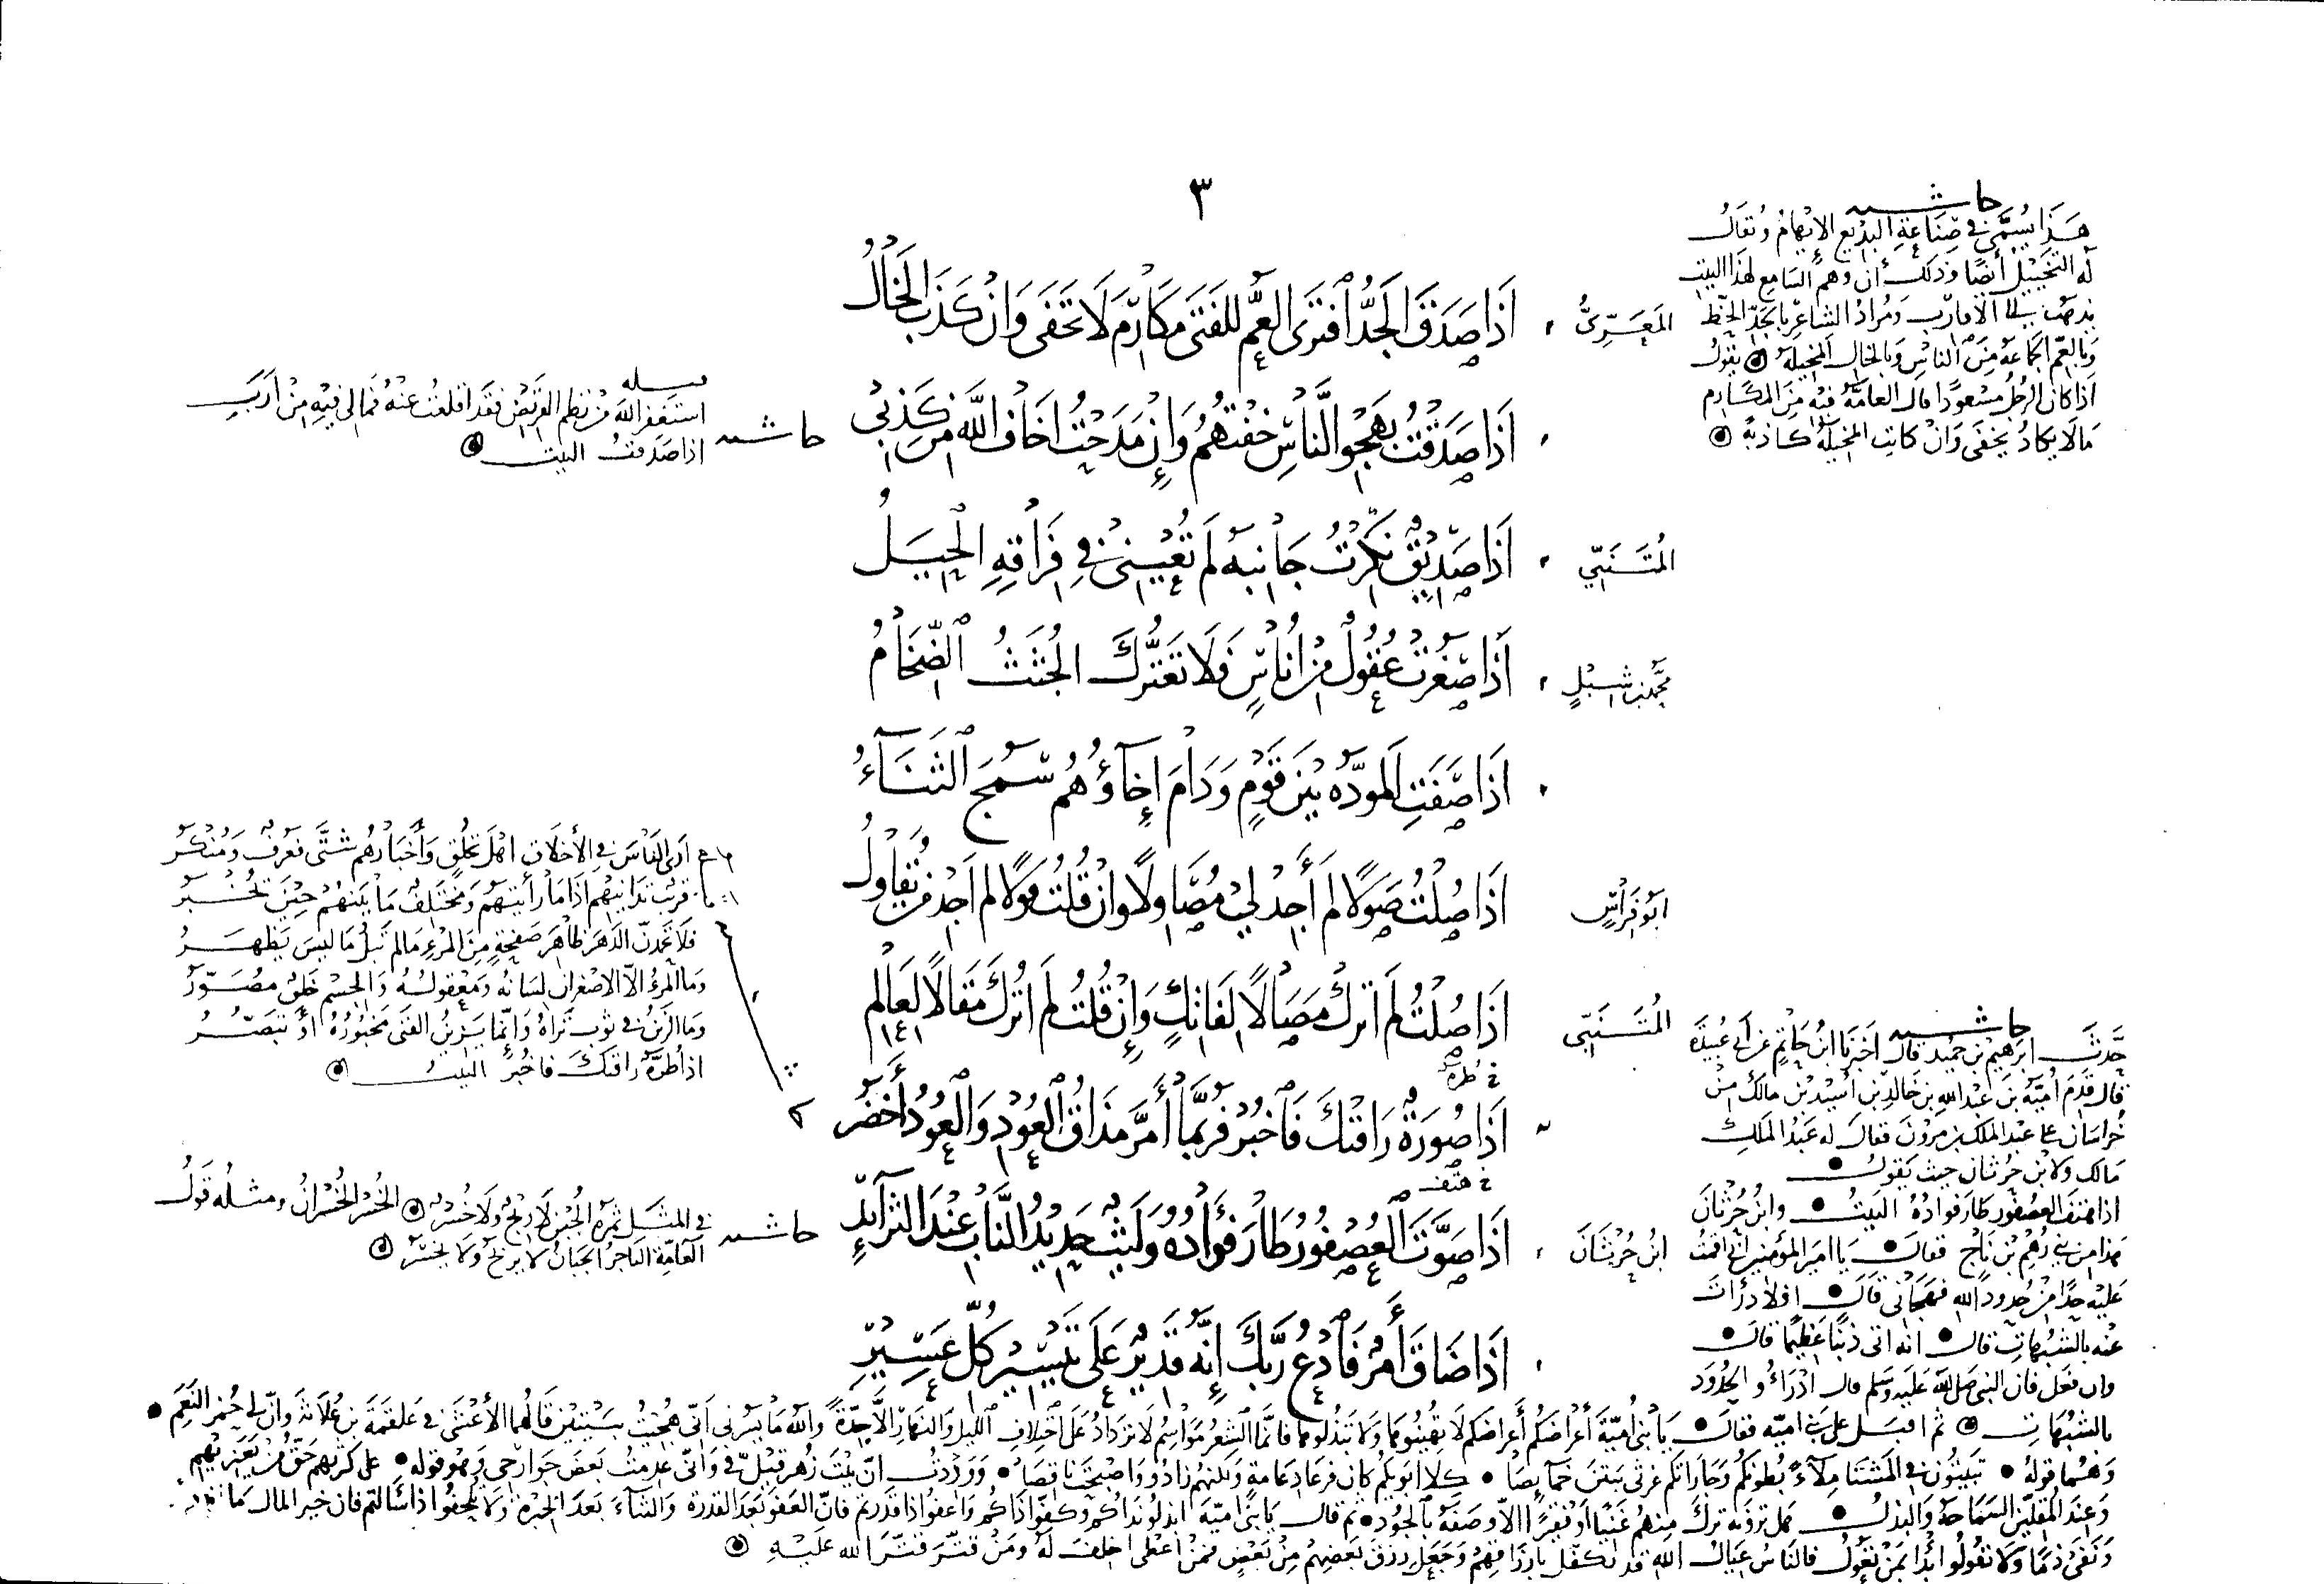 ٣
حاشية
هَذَا يُسَمَّى فِي صِنَاعَةِ البَدِيعِ الإِيهَامُ وَيُقَالُ
لَهُ التَّخْيِيلُ أَيْضًا وَذَلِكَ أَنَّ وَهْمَ السَّامِعِ لِهَذَا البَيْتِ
يَذْهَبُ إِلَى الأَقَارِبِ وَمُرَادُ الشَّاعِرِ بِالجَدِّ الحَظّ
وَبِالعَمِّ الجَمَاعَةَ مِنَ النَّاسِ وَبِالخَالِ المَخِيلَةَ يَقُولُ
إِذَا كَانَ الرَّجُلُ مَسْعُودًا قَالَ العَامَّةُ فِيْهِ مِنَ المَكَارِمِ
مَا لَا يَكَادُ يَخْفَى وَإِنْ كَانَتِ المَخِيلَةُ كَاذِبَةً
المَعَرِّيُّ
إِذَا صَدَقَ الجَدُّ افْتَرَى العَمُّ لِلفَتَى مَكَارِمَ لَا تَخْفَى وَإِنْ كَذَبَ الخَالُ
إِذَا صَدَقْتُ بِهَجْوِ النَّاسِ خِفْتُهُمُ وَإِنْ مَدَحْتُ أَخَافُ اللَّهَ مِنْ كَذِبِي
حاشية
قبله
أستغفر الله من نظم القريض فقد أقلعت عنه فما لي فيه من أرب
إذا صدقت البيت
المُتَنَبِّي
إِذَا صَدِيْقٌ نَكِرْتُ جَانِبَهُ لَمْ تُعْيِنِي فِي فِرَاقِهِ الحِيَلُ
مُحَمَّد بن شِبْلٍ
إِذَا صَغُرَتْ عُقُولٌ مِنْ أُنَاسٍ فَلَا تَغْرُرْكَ الجُثَثُ الضِّخَامُ
إِذَا صَفَتِ المَوَدَّةُ بَيْنَ قَوْمٍ وَدَامَ إِخَاؤُهُمْ سَمُجَ الثَّنَاءُ
أَبُو فِرَاسٍ
إِذَا صُلْتُ صَوْلًا لَمْ أَجِدْ لِي مُصَاوِلًا وَإِنْ قُلْتُ قَوْلًا لَمْ أَجِدْ مَنْ يُقَاوِلُ
المُتَنَبِّي
إِذَا صُلْتُ لَمْ أَتْرُكْ مَصَالًا لِفَاتِكٍ وَإِنْ قُلْتُ لَمْ أَتْرُكْ مَقَالًا لِعَالِمِ
خ طرة
إِذَا صُورَةٌ رَاقَتْكَ فَاخْبُرْ فَرُبَّمَا أَمَرَّ مَذَاقُ العُوْدِ وَالعُوْدُ أَخْضَرُ
أَرَى النَّاسَ فِي الأَخْلَاقِ أَهْلَ تَخَلُّقٍ وَأَخْبَارُهُمْ شَتَّى فَعُرْفٌ وَمُنْكَرُ
قَرِيْبٌ تَدَانِيْهِمْ إِذَا مَا رَأَيْتَهُمْ وَمُخْتَلِفٌ مَا بَيْنَهُمْ حِيْنَ تَخْبُرُ
فَلَا تَحْمَدَنَّ الدَّهْرَ ظَاهِرَ صَفْحَةٍ مِنَ المَرْءِ مَا لَمْ تَبْلُ مَا لَيْسَ يَظْهَرُ
وَمَا المَرْءُ إِلَّا الأَصْغَرَانِ لِسَانُهُ وَمَعْقُولُهُ وَالجِسْمُ خَلْقٌ مُصَوَّرُ
وَمَا الزَّيْنُ فِي ثَوْبٍ تَرَاهُ وَإِنَّمَا يَزِيْنُ الفَتَى مَخْبُوْرُهُ إِذْ تَبَصَّرُ
إِذَا طُرَّةٌ رَاقَتْكَ فَاخْبُرْ البيت
خ هتف
ابْنُ حُرْثَانَ
إِذَا صَوَّتَ العُصْفُورُ طَارَ فُؤَادُهُ وَلَيْثٌ حَدِيدُ النَّابِ عِنْدَ الثَّرَائِدِ
حاشية
فِي المَثَلِ ثَمَرَةُ الجُبْنِ لَا رِبْحٌ وَلَا خُسْرٌ الخُسْرُ الخُسْرَانُ وَمِثْلُهُ قَوْلُ
العَامَّةِ التَّاجِرُ الجَبَانُ لَا يَرْبَحُ وَلَا يَخْسَرُ
إِذَا ضَاقَ أَمْرٌ فَادْعُ رَبَّكَ إِنَّهُ قَدِيْرٌ عَلَى تَيْسِيْرِ كُلِّ عَسِيْرِ
حاشية
حَدَّثَ إِبْرَهِيْمُ بْنُ حُمَيْدٍ قَالَ أَخْبَرَنَا ابْنُ حَاتِمٍ عَنْ أَبِي عُبَيْدَةَ
قَالَ قَدِمَ أُمَيَّةُ بْنُ عَبْدِ اللهِ بْنِ خَالِدِ بْنِ أُسَيْدِ بْنِ مَالِكٍ مِنْ
خُرَاسَانَ عَلَى عَبْدِ المَلِكِ بْنِ مَرْوَنَ فَقَالَ لَهُ عَبْدُ المَلِكِ
مَا لَكَ وَلِابْنِ حُرْثَانَ حَيْثُ يَقُولُ
إِذَا هَتَفَ العُصْفُورُ طَارَ فُوَادُهُ البَيْتُ وَابْنُ حُرْثَانَ
هَذَا مِنْ بَنِي رُهْمِ بْنِ نَاجٍ فَقَالَ يَا أَمِيْرَ المُؤْمِنِيْنَ إِنِّي أَقَمْتُ
عَلَيْهِ حَدًّا مِنْ حُدُودِ اللهِ فَهَجَانِي قَالَ أَفَلَا دَرَأْتَ
عَنْهُ بِالشُّبُهَاتِ قَالَ إِنَّهُ أَتَى ذَنْبًا عَظِيْمًا قَالَ
وَإِنْ فَعَلَ فَإِنَّ النَّبِيَّ صَلَّى اللهُ عَلَيْهِ وَسَلَّمَ قَالَ ادْرَأُوا الحُدُودَ
بِالشُّبُهَاتِ ثُمَّ أَقْبَلَ عَلَى بَنِي أُمَيَّةَ فَقَالَ يَا بَنِي أُمَيَّةَ أَعْرَاضَكُمْ أَعْرَاضَكُمْ لَا تُهِيْنُوهَا وَلَا تَبْذُلُوهَا فَإِنَّمَا الشِّعْرُ مَوَاسِمُ لَا تَزْدَادُ عَلَى اخْتِلَافِ اللَّيْلِ وَالنَّهَارِ إِلَّا جِدَّةً وَاللهِ مَا يَسُرُّنِي أَنِّي هُجِيْتُ بِبَيْتَيْنِ قَالَهُمَا الأَعْشَى فِي عَلْقَمَةَ بْنِ عُلَاثَةَ وَأَنَّ لِي حُمْرَ النَّعَمِ
وَهُمَا قَوْلُهُ تَبِيْتُونَ فِي المَشْتَا مِلَاءً بُطُونُكُمْ وَجَارَاتُكُمْ غَرْثَى يَبِتْنَ خَمَائِصَا كِلَا أَبَوَيْكُمْ كَانَ فَرْعًا دِعَامَةً وَلَكِنَّهُمْ زَادُوا وَأَصْبَحْتَ نَاقِصَا وَوَدِدْتُ أَنَّ بَيْتَ زُهَيْرٍ قِيْلَ فِيَّ وَأَنِّي عَدِمْتُ بَعْضَ جَوَارِحِي وَهُوَ قَوْلُهُ عَلَى مُكْثِرِيْهِمْ حَقُّ مَنْ يَعْتَرِيْهِمُ
وَعِنْدَ المُقِلِّيْنَ السَّمَاحَةُ وَالبَذْلُ هَلْ تَرَوْنَهُ تَرَكَ مِنْهُمْ غَنِيًّا أَوْ فَقِيْرًا إِلَّا وَصَفَهُ بِالجُودِ ثُمَّ قَالَ يَا بَنِي أُمَيَّةَ ابْذُلُوا نَدَاكُمْ وَكُفُّوا أَذَاكُمْ وَاعْفُوا إِذَا قَدَرْتُمْ فَإِنَّ العَفْوَ بَعْدَ القُدْرَةِ وَالثَّنَاءَ بَعْدَ الخِبْرَةِ وَلَا تُلْحِفُوا إِذَا سَأَلْتُمْ فَإِنَّ خَيْرَ المَالِ مَا
وَنَفَى ذَمًّا وَلَا تَقُولُوا ابْدَأْ بِمَنْ تَعُولُ فَالنَّاسُ عِيَالُ اللهِ قَدْ تَكَفَّلَ بِأَرْزَاقِهِمْ وَجَعَلَ رِزْقَ بَعْضِهِمْ مِنْ بَعْضٍ فَمَنْ أَعْطَى أَخْلَفَ لَهُ وَمَنْ قَتَّرَ قَتَّرَ اللهُ عَلَيْهِ